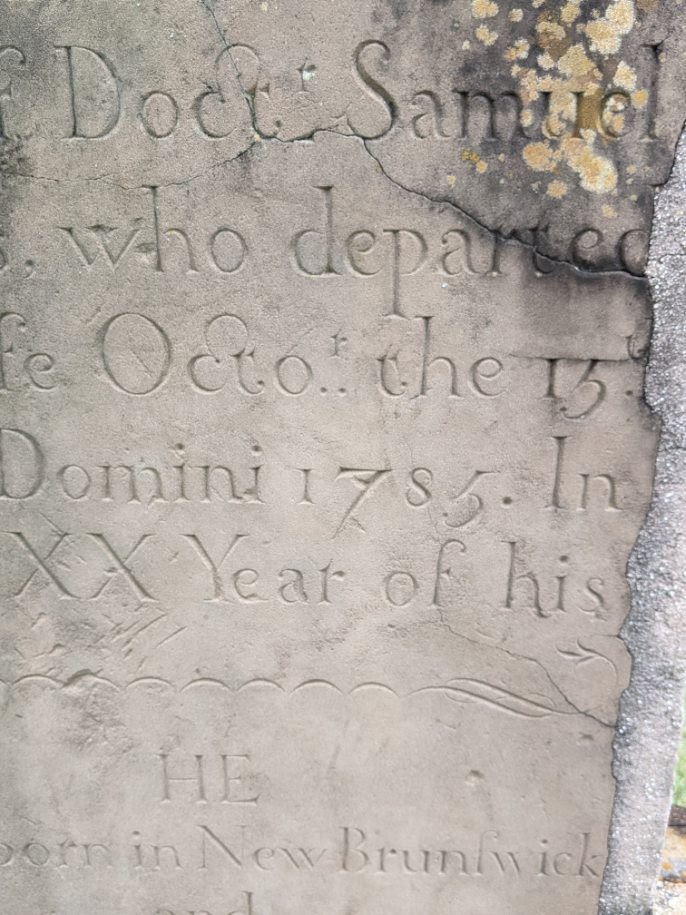 f Doct.r Samuel
s, who departed
fe Octo.r the 13.t
Domini 1785. In
XX Year of his
HE
born in New Brunſwick
and